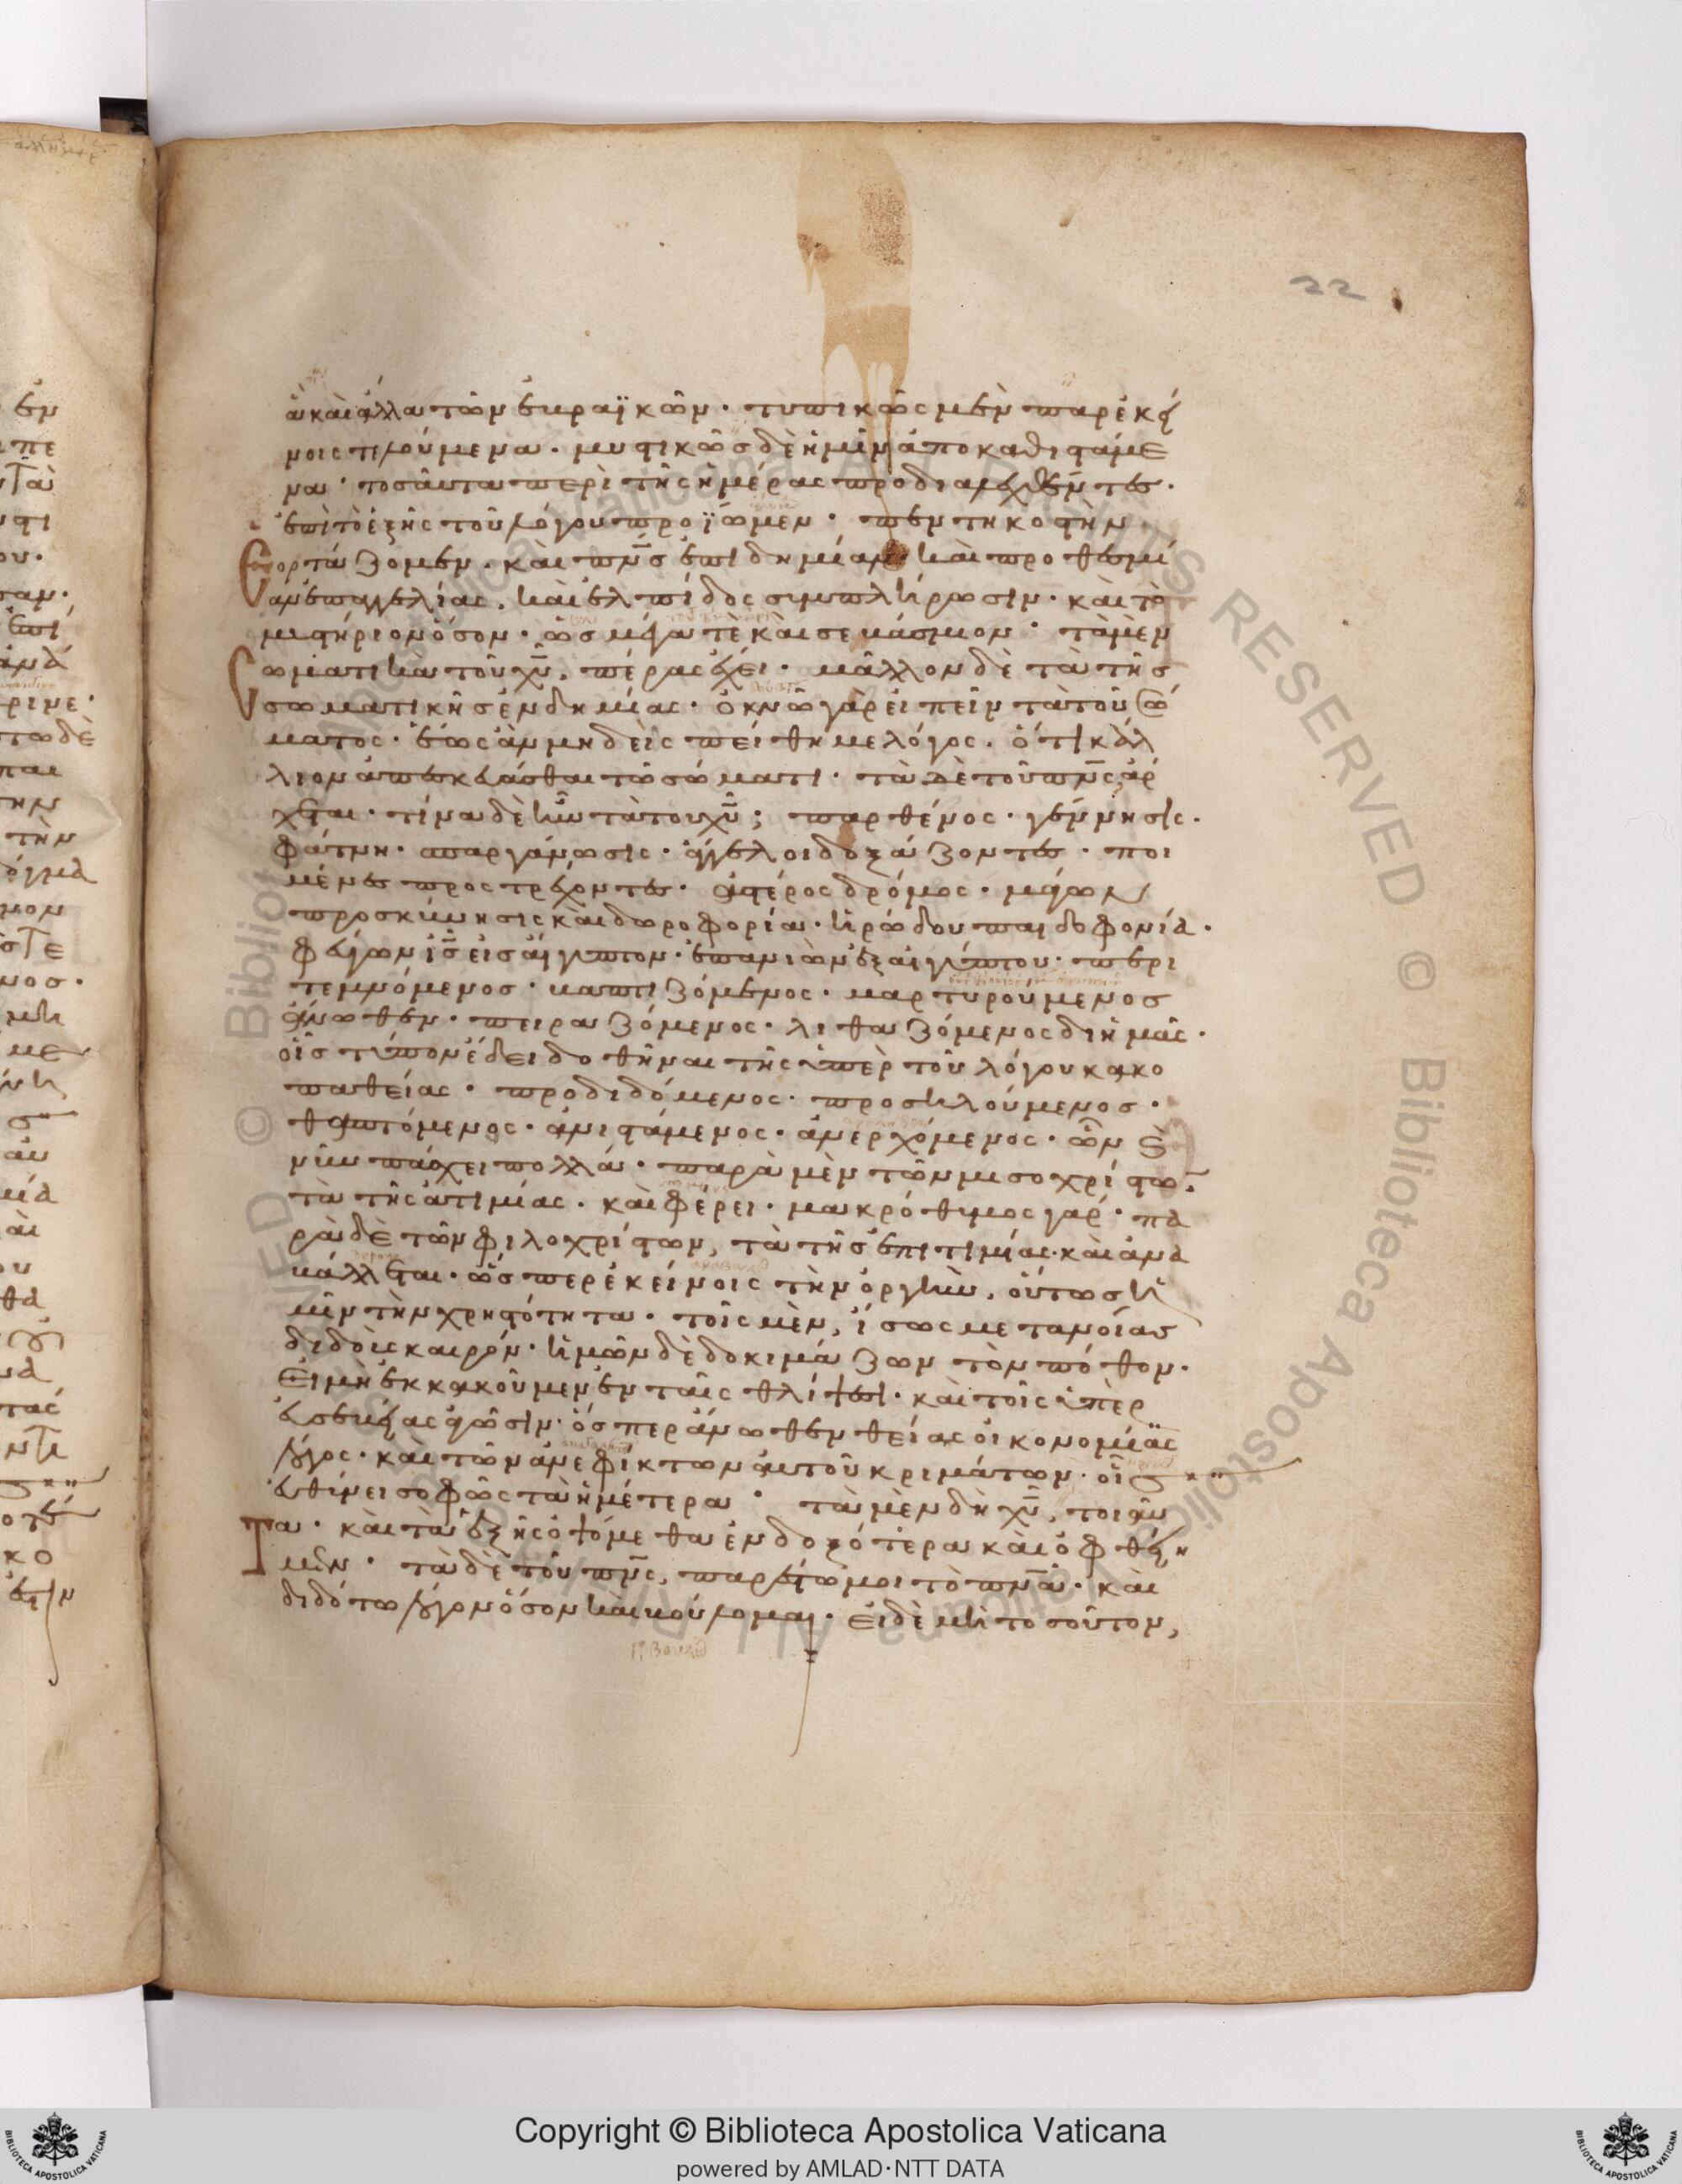 ἃ καὶ ἄλλα τῶν ἑβραϊκῶν· τυπικῶς μὲν παρ' ἐκεί
νοις τελούμενα· μυστικῶς δὲ ἡμῖν ἀποκαθιστάμε
να· τοσαῦτα περὶ τῆς ἡμέρας προδιαλεχθέντες·
ἐπὶ τὸ ἑξῆς τοῦ λόγου προΐωμεν· πεντηκοστὴν
ἑορτάζομεν· καὶ πν̅ς ἐπιδημίαν· καὶ προθεσμί
αν ἐπαγγελίας, καὶ ἐλπίδος συμπλήρωσιν· καὶ τὸ
μυστήριον ὅσον· ὡς μέγα τὲ καὶ σεβάσμιον· τὰ μὲν
σωματικὰ τοῦ χυ̅, πέρας ἔχει· μᾶλλον δὲ τὰ τῆς
σωματικῆς ἐνδημίας· ὀκνῶ γὰρ εἰπεῖν τὰ τοῦ σώ
ματος· ἕως ἂν μηδεὶς πείθη με λόγος. ὅτι κάλ
λιον ἀπεσκευάσθαι τῶ σώματι· τὰ δὲ τοῦ πν̅ς ἄρ
χεται· τίνα δὲ ἦν τὰ τοῦ χυ̅; παρθένος· γέννησις·
φάτνη· σπαργάνωσις· ἄγγελοι δοξάζοντες· ποι
μένες προστρέχοντες· ἀστέρος δρόμος· μάγων
προσκύνησις καὶ δωροφορία· ἡρώδου παιδοφονία·
φεύγων ισ̅ εἰς αἴγυπτον· ἐπανιὼν ἐξ αἰγύπτου· περι
τεμνόμενος· βαπτιζόμενος· μαρτυρούμενος
ἄνωθεν· πειραζόμενος· λιθαζόμενος δι' ἡμᾶς·
οἷς τύπον ἔδει δοθῆναι τῆς ὑπὲρ τοῦ λόγου κακο
παθείας· προδιδόμενος· προσηλούμενος·
θαπτόμενος· ἀνιστάμενος· ἀνερχόμενος· ὧν καὶ
νῦν πάσχει πολλά· παρὰ μὲν τῶν μισοχρίστων
τὰ τῆς ἀτιμίας· καὶ φέρει· μακρόθυμος γάρ· πα
ρὰ δὲ τῶν φιλοχρίστων, τὰ τῆς ἐπιτιμίας· καὶ ἀνα
βάλλεται· ὥσπερ ἐκείνοις τὴν ὀργὴν, οὕτως ἡ
μῖν τὴν χρηστότητα· τοῖς μὲν, ἴσως μετανοίας
διδοὺς καιρόν· ἡμῶν δὲ δοκιμάζων τὸν πόθον·
εἰ μὴ ἐκκακοῦμεν ἐν ταῖς θλίψεσι· καὶ τοῖς ὑπὲρ
εὐσεβείας ἀγῶσιν· ὅσπερ ἄνωθεν θείας οἰκονομίας
λόγος· καὶ τῶν ἀνεφίκτων αὐτοῦ κριμάτων· οἷς
εὐθύνει σοφῶς τὰ ἡμέτερα· τὰ μὲν δὴ χυ̅, τοιαῦ
τα· καὶ τὰ ἑξῆς ὀψόμεθα ἐνδοξότερα καὶ ὀφθείη
μεν· τὰ δὲ τοῦ πν̅ς, παρέστω μοι τὸ πν̅α· καὶ
διδότω λόγον ὅσον καὶ βούλομαι· εἰ δὲ μὴ τοσοῦτον,
22
Copyright © Biblioteca Apostolica Vaticana
powered by AMLAD·NTT DATA